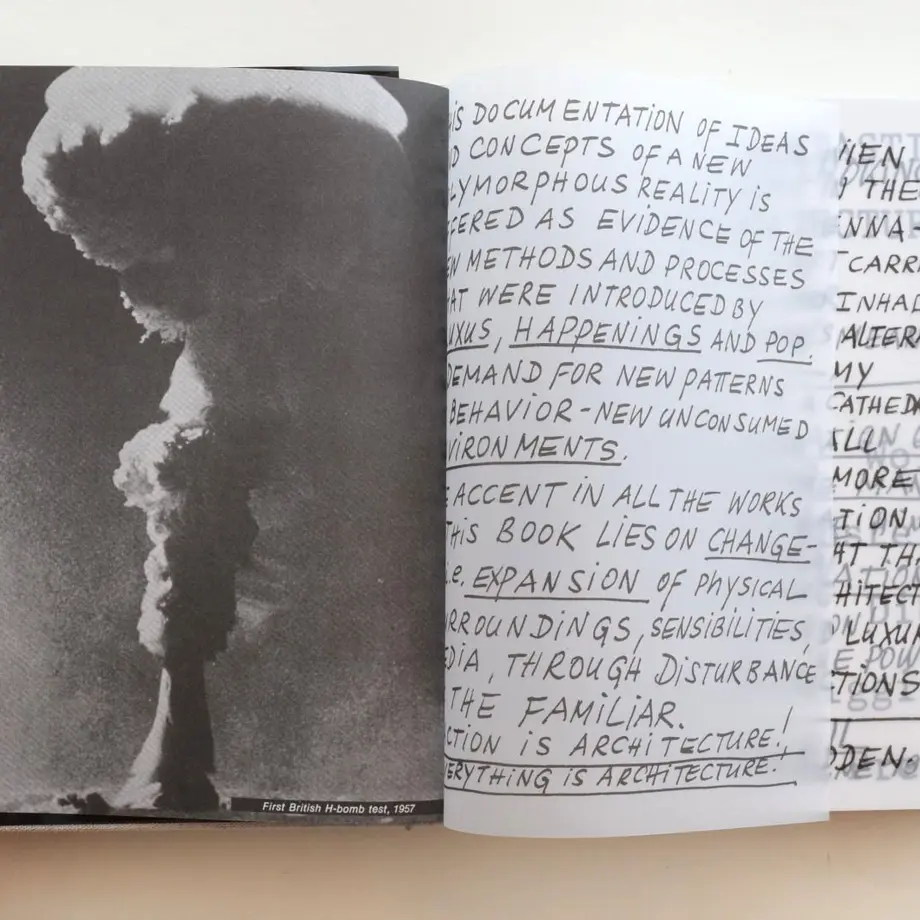 First British H-bomb test, 1957
IS DOCUMENTATION OF IDEAS
D CONCEPTS OF A NEW
LYMORPHOUS REALITY IS
FERED AS EVIDENCE OF THE
EW METHODS AND PROCESSES
AT WERE INTRODUCED BY
UXUS, HAPPENINGS AND POP.
DEMAND FOR NEW PATTERNS
BEHAVIOR - NEW UNCONSUMED
VIRONMENTS.
E ACCENT IN ALL THE WORKS
THIS BOOK LIES ON CHANGE-
i.e. EXPANSION OF PHYSICAL
RROUNDINGS, SENSIBILITIES,
EDIA, THROUGH DISTURBANCE
THE FAMILIAR.
CTION IS ARCHITECTURE!
VERYTHING IS ARCHITECTURE!
IEN
THE
NNA-
CARR
INHAL
ALTER
MY
CATHED
ALL
MORE
TION
AT THA
HITECT
LUXU
TIONS
DEN-